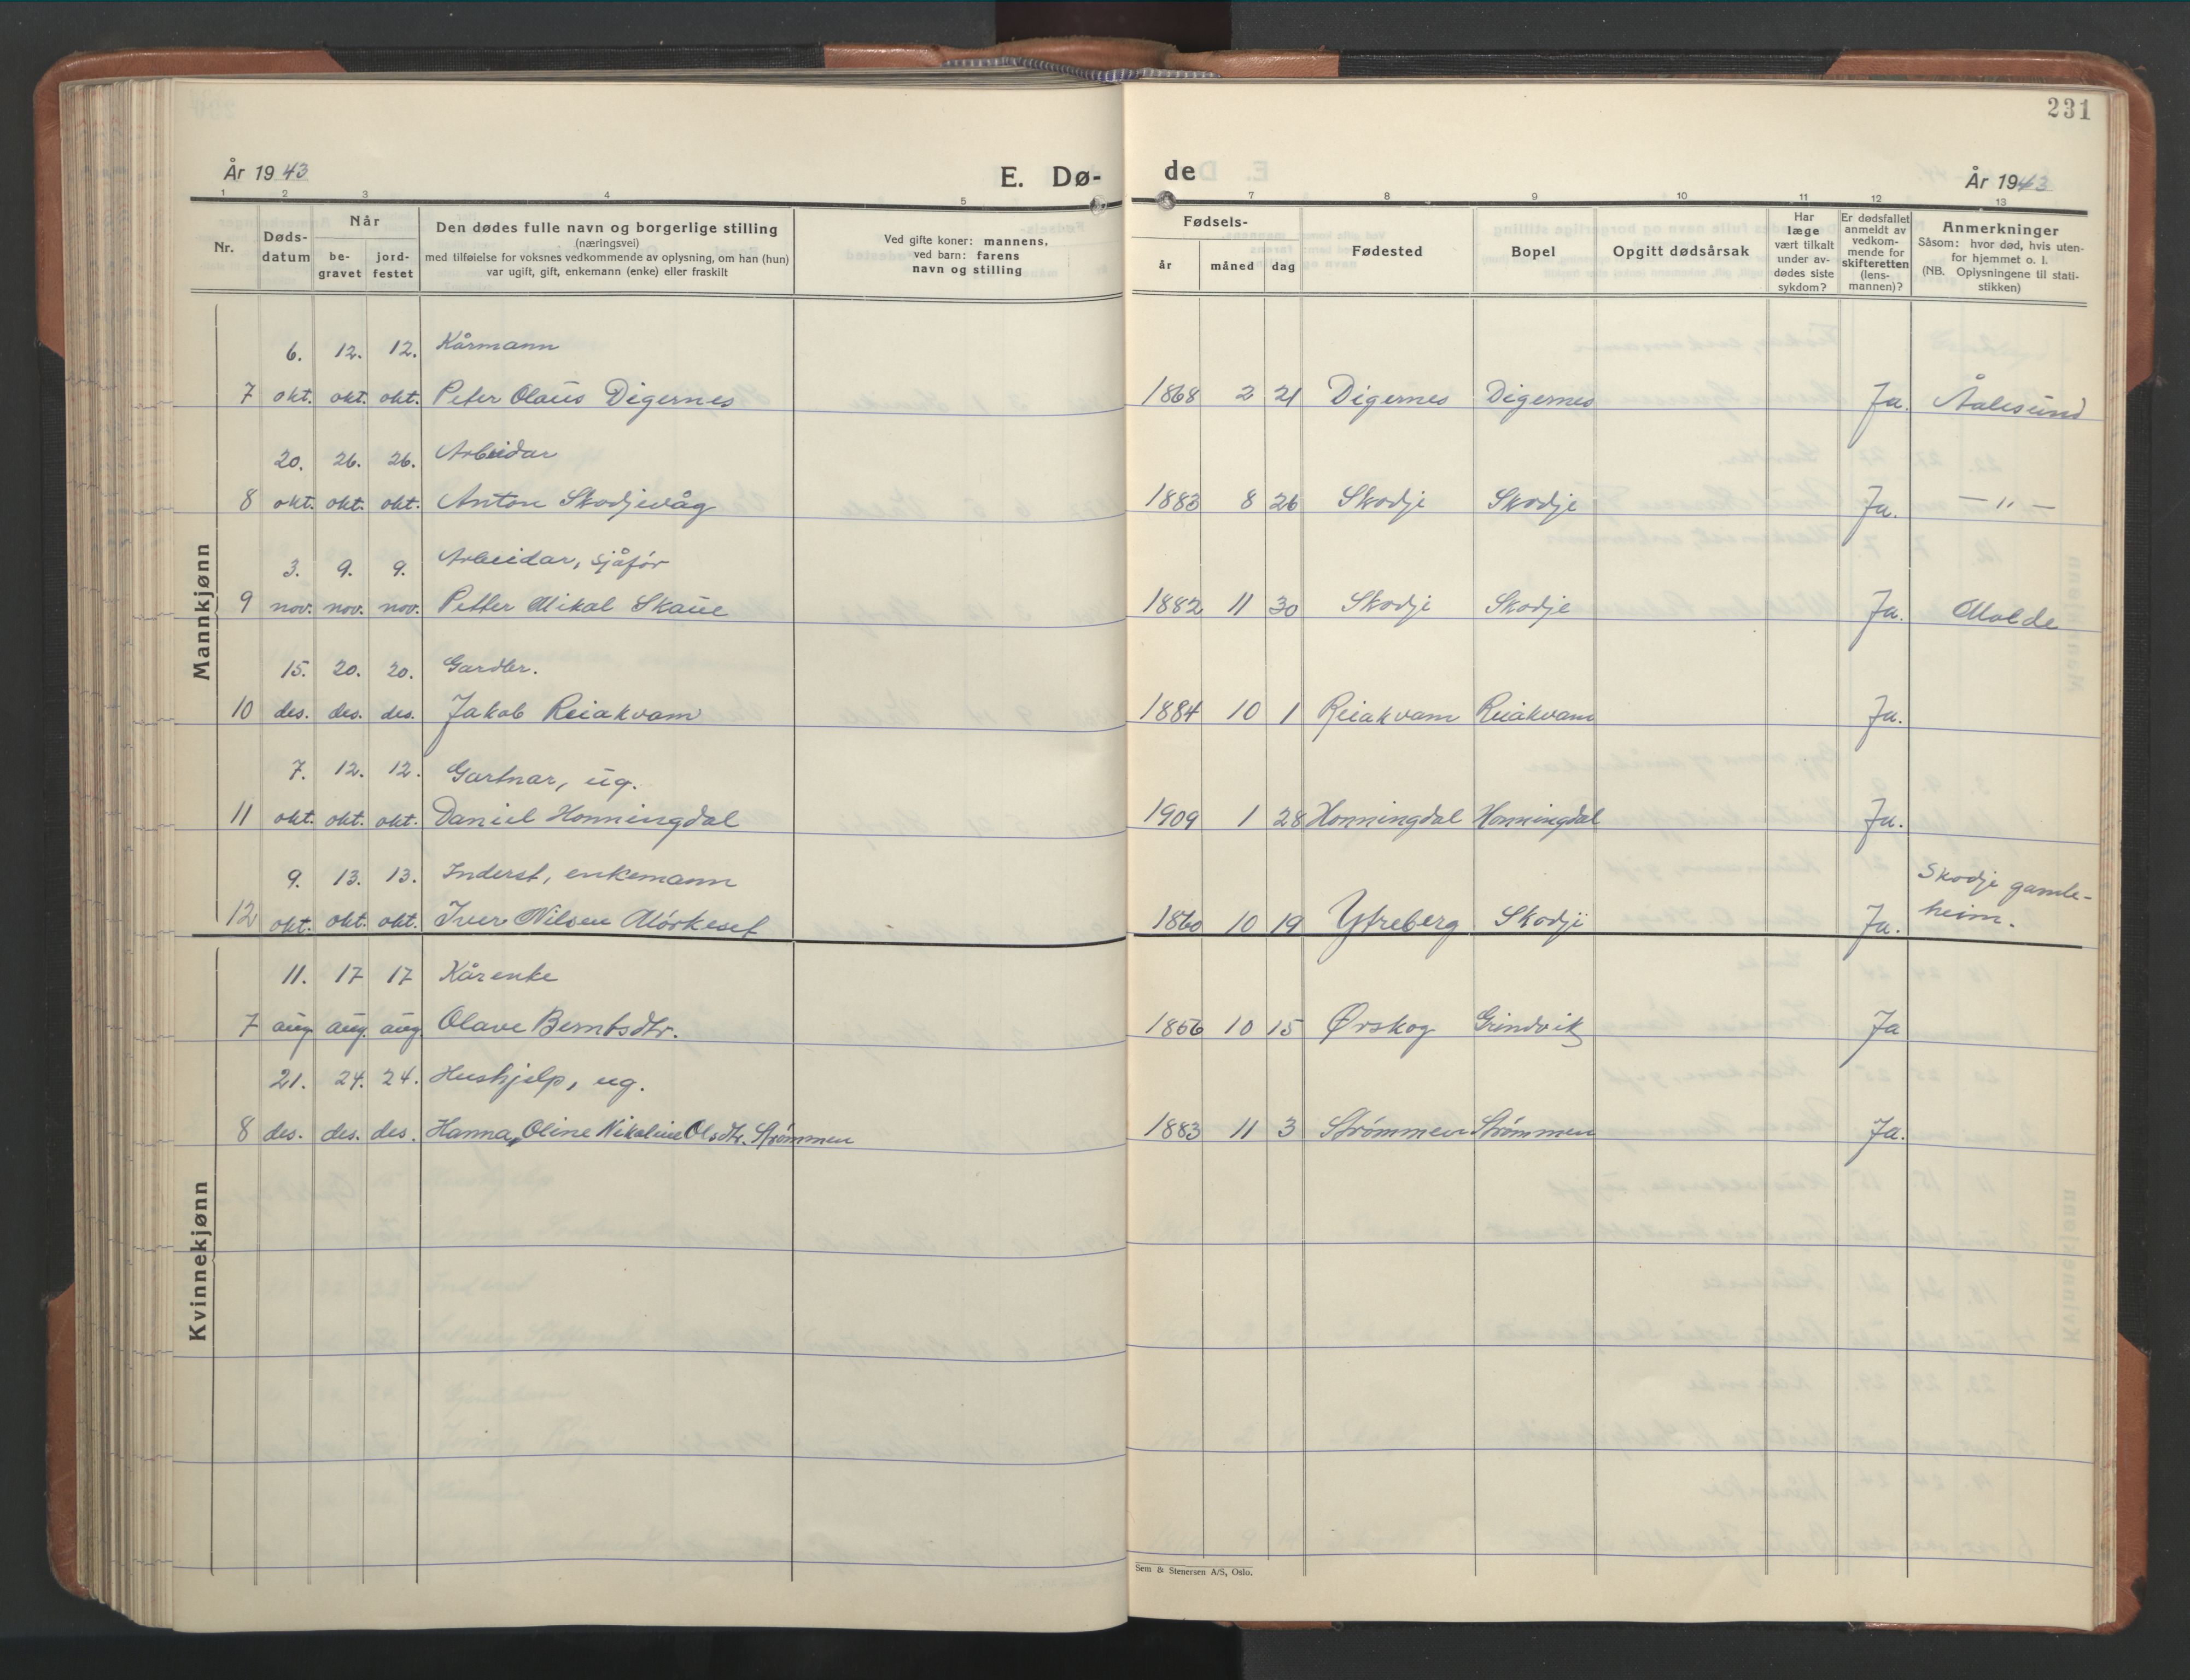 231
År 1943
E. Dø-
de
År 1943
1 2 3 4 5 7 8 9 10 11 12 13
Nr.
Døds-
datum
Når
be-
gravet
jord-
festet
Den dødes fulle navn og borgerlige stilling
(næringsvei)
med tilføielse for voksnes vedkommende av oplysning, om han (hun)
var ugift, gift, enkemann (enke) eller fraskilt
Ved gifte koner: mannens,
ved barn: farens
navn og stilling
Fødsels-
år måned dag
Fødested
Bopel
Opgitt dødsårsak
Har
læge
vært tilkalt
under av-
dødes siste
sykdom?
Er dødsfallet
anmeldt av
vedkom-
mende for
skifteretten
(lens-
mannen)?
Anmerkninger
Såsom: hvor død, hvis uten-
for hjemmet o. l.
(NB. Oplysningene til stati-
stikken)
Mannkjønn
6. 12. 12. Kårmann
7 okt. okt. okt. Peter Olaus Digernes 1868 2 21 Digernes Digernes Ja. Ålesund
20. 26. 26. Arbeidar
8 okt. okt. okt. Anton Skodjevåg 1883 8 26 Skodje Skodje Ja. — " —
3. 9. 9. Arbeidar, sjåfør
9 nov. nov. nov. Petter Mikal Skaue 1882 11 30 Skodje Skodje Ja. Molde
15. 20. 20. Gardbr.
10 des. des. des. Jakob Reiakvam 1884 10 1 Reiakvam Reiakvam Ja.
7. 12. 12. Gartnar, ug.
11 okt. okt. okt. Daniel Honningdal 1909 1 28 Honningdal Honningdal Ja.
9. 13. 13. Inderst, enkemann
12 okt. okt. okt. Iver Nilsen Mørkeset 1860 10 19 Ytreberg Skodje Ja. Skodje gamle-
heim.
Kvinnekjønn
11. 17 17 Kårenke
7 aug. aug. aug. Olave Berntsdtr. 1856 10 15 Ørskog Grindvik Ja
21. 24. 24. Hushjelp, ug.
8 des. des. des. Hanna Oline Nikoline Olsdtr. Strømmen 1883 11 3 Strømmen Strømmen Ja.
Sem & Stenersen A/S, Oslo.